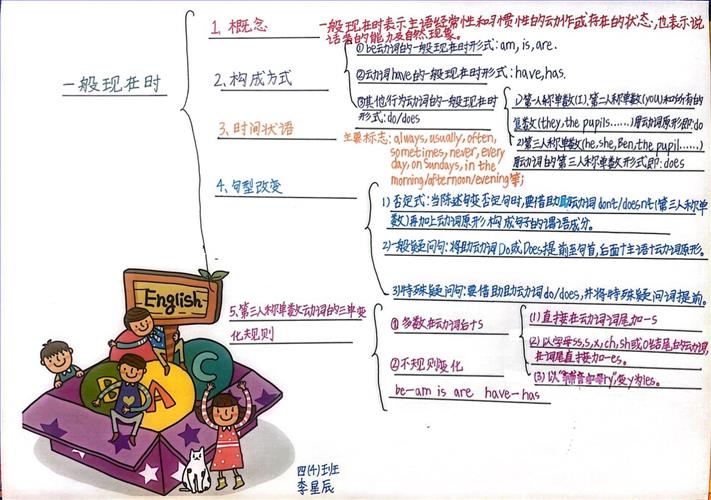 一般现在时
1、概念
一般现在时表示主语经常性和习惯性的动作或存在的状态，也表示说
话者的能力及自然现象。
2、构成方式
①be动词的一般现在时形式：am, is, are.
②动词have的一般现在时形式：have, has.
③其他行为动词的一般现在时
形式：do/does
1)第一人称单数(I)、第二人称单数(you)和所有的
复数(they, the pupils......)用动词原形即:do
2)第三人称单数(he, she, Ben, the pupil......)
用动词的第三人称单数形式即：does
3、时间状语
主要标志：always, usually, often,
sometimes, never, every
day, on Sundays, in the
morning/afternoon/evening等；
4、句型改变
1）否定式：当陈述句变否定句时，要借助助动词don't/doesn't(第三人称单
数)再加上动词原形构成句子的谓语成分。
2)一般疑问句：将助动词Do或Does提前至句首，后面十主语十动词原形。
3)特殊疑问句：要借助助动词do/does,并将特殊疑问词提前。
5、第三人称单数动词的三单变
化规则
①多数在动词后+s
(1)直接在动词词尾加-s
(2)以字母ss, s, x, ch, sh或o结尾的动词,
在词尾直接加-es。
(3)以"辅音字母+y",变y为ies。
②不规则变化
be-am is are have-has
English
B
A
C
四(4)班
李星辰